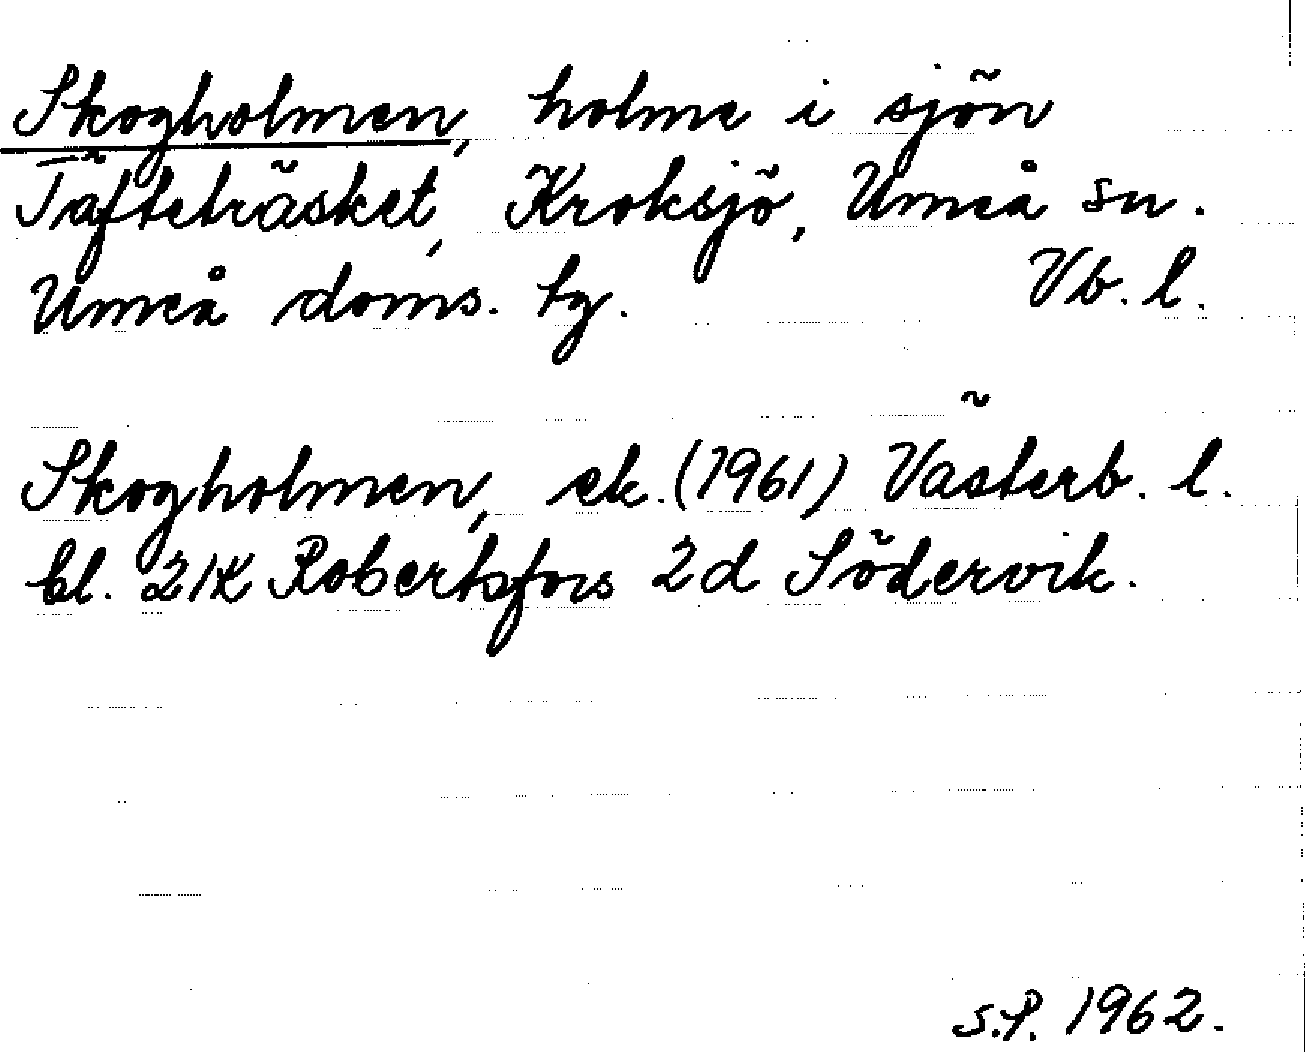 Skogholmen, holme i sjön
Täfteträsket, Kroksjö, Umeå sn.
Umeå doms. tg. Vb. l.
Skogholmen, ek. (1961) Västerb. l.
bl. 21K Robertsfors 2d Södervik.
S.P. 1962.